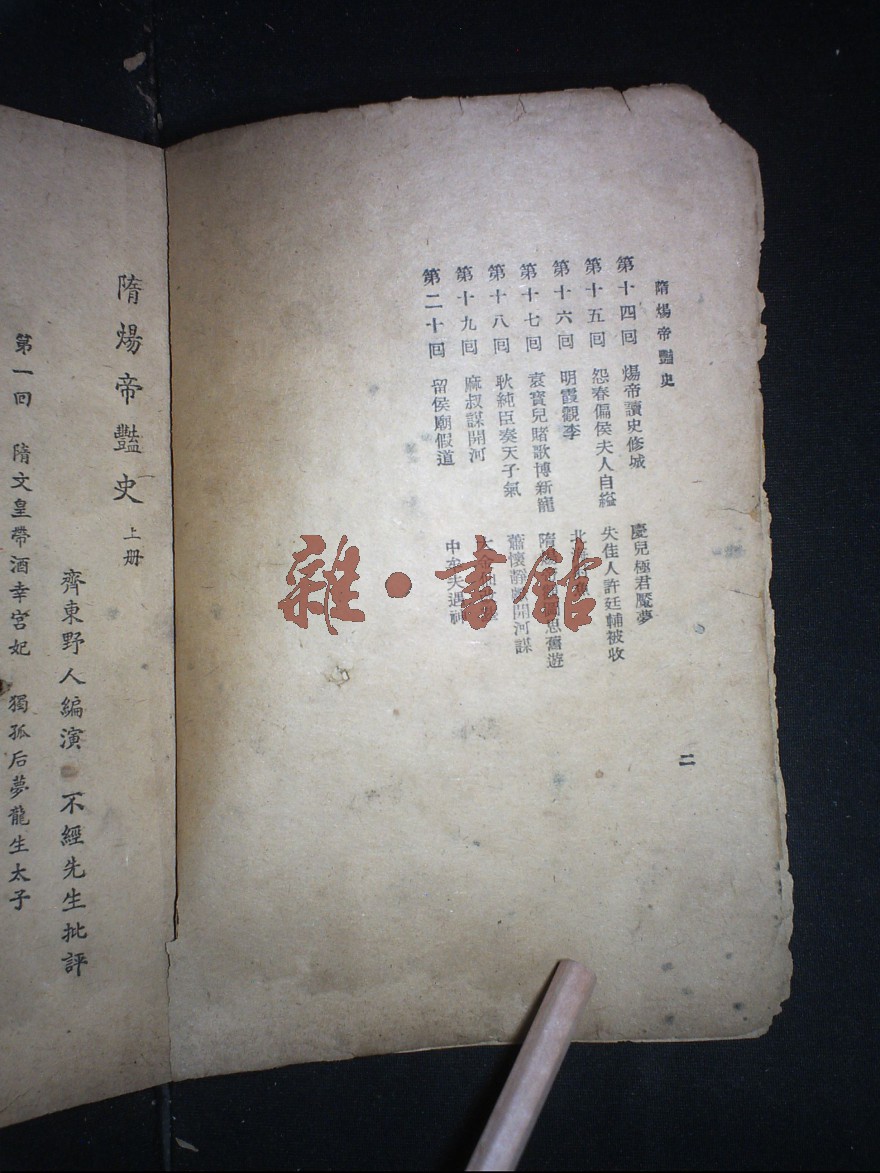 隋煬帝豔史
第十四回 煬帝讀史修城 慶兒極君魘夢
第十五回 怨春偏侯夫人自縊 失佳人許廷輔被收
第十六回 明霞觀李 北
第十七回 袁寶兒賭歌博新寵 隋 思舊遊
第十八回 耿純臣奏天子氣 蕭懷靜 開河謀
第十九回 麻叔謀開河
第二十回 留侯廟假道 中牟夫遇
二
隋煬帝豔史 上册
齊東野人編演 不經先生批評
第一回 隋文皇帶酒幸宮妃 獨孤后夢龍生太子
雜·書館